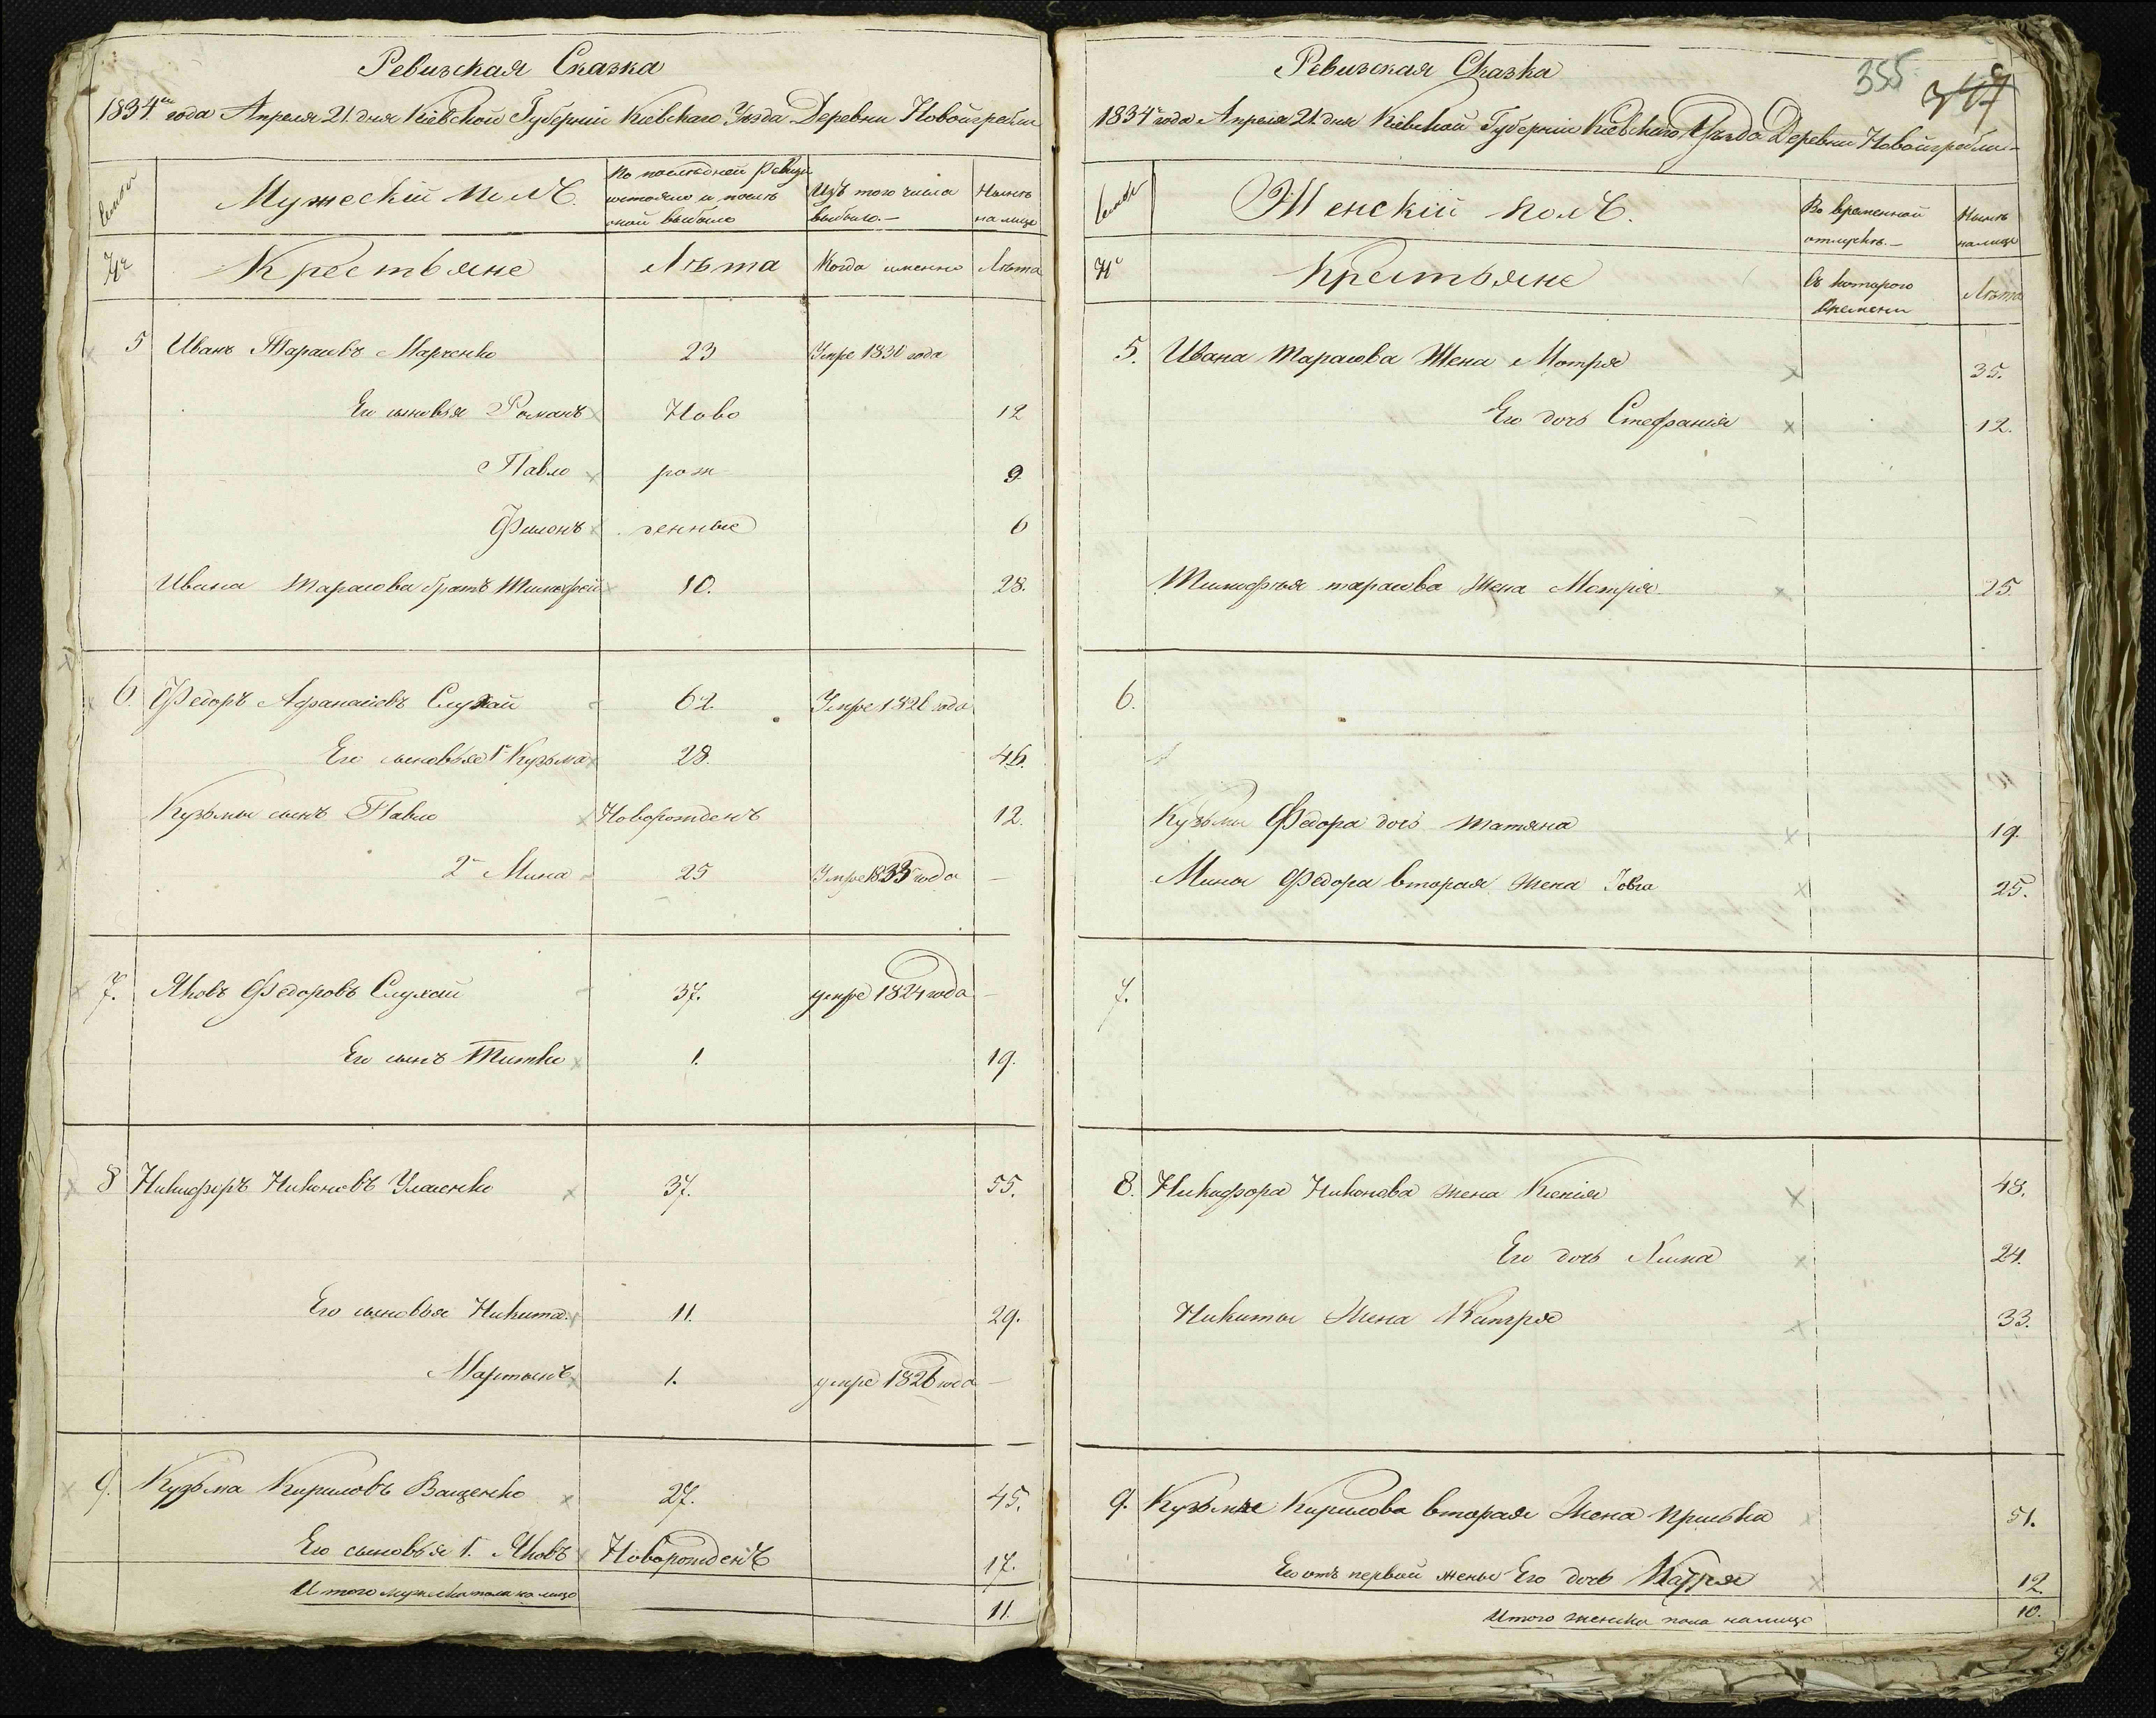 Ревизская Сказка
1834го года Апреля 21. дня Кіевской Губерніи Кіевскаго Уезда Деревни Новойгребли
Семьи
Мужескій полъ.
По последней Ревизіи
состояло и после
оной выбыло
Изъ того числа
выбыло.
Ныне
на лице
№
Крестьяне
Лета
Когда именно
Лета
5 Иванъ Тарасовъ Марченко 23 Умре 1830 года
Его сыновья Романъ Ново 12
Павло рож 9
Филонъ денные 6
Ивана Тарасова братъ Тимофей 10. 28.
6. Федоръ Афанасіевъ Слухай 62. Умре 1826 года
Его сыновья 1й Кузьма 28. 46.
Кузьмы сынъ Павло Новорожденъ 12.
2й Мина 25 Умре 1833 года —
7. Яковъ Федоровъ Слухай 37. умре 1824 года —
Его сынъ Титко 1. 19.
8 Никифоръ Никоновъ Уласенко 37. 55.
Его сыновья Никита 11. 29.
Мартынъ 1. умре 1826 года —
9. Кузьма Кириловъ Ващенко 27. 45.
Его сыновья 1. Яковъ Новорожденъ 17.
Итого мужеска пола на лице 11.
355
Ревизская Сказка
1834го года Апреля 21. дня Кіевской Губерніи Кіевскаго Уезда Деревни Новойгребли
Семьи
Женскій полъ.
Во временной
отлучке.
Ныне
налице
№
Крестьяне
Съ котораго
времени
Лета
5. Ивана Тарасова Жена Мотря 35.
Его дочь Стефанія 12.
Тимофея тарасова Жена Мотря 25
6.
Кузьмы Федора дочь татяна 19.
Мины Федора вторая жена Іовга 25.
7.
8. Никифора Никонова жена Ксенія 48.
Его дочь Химка 24.
Никиты Жена 33.
9. Кузьмы Кирилова вторая Жена Приська 51.
Его отъ первой жены Его дочь Катря 12
Итого женска пола налице 10.